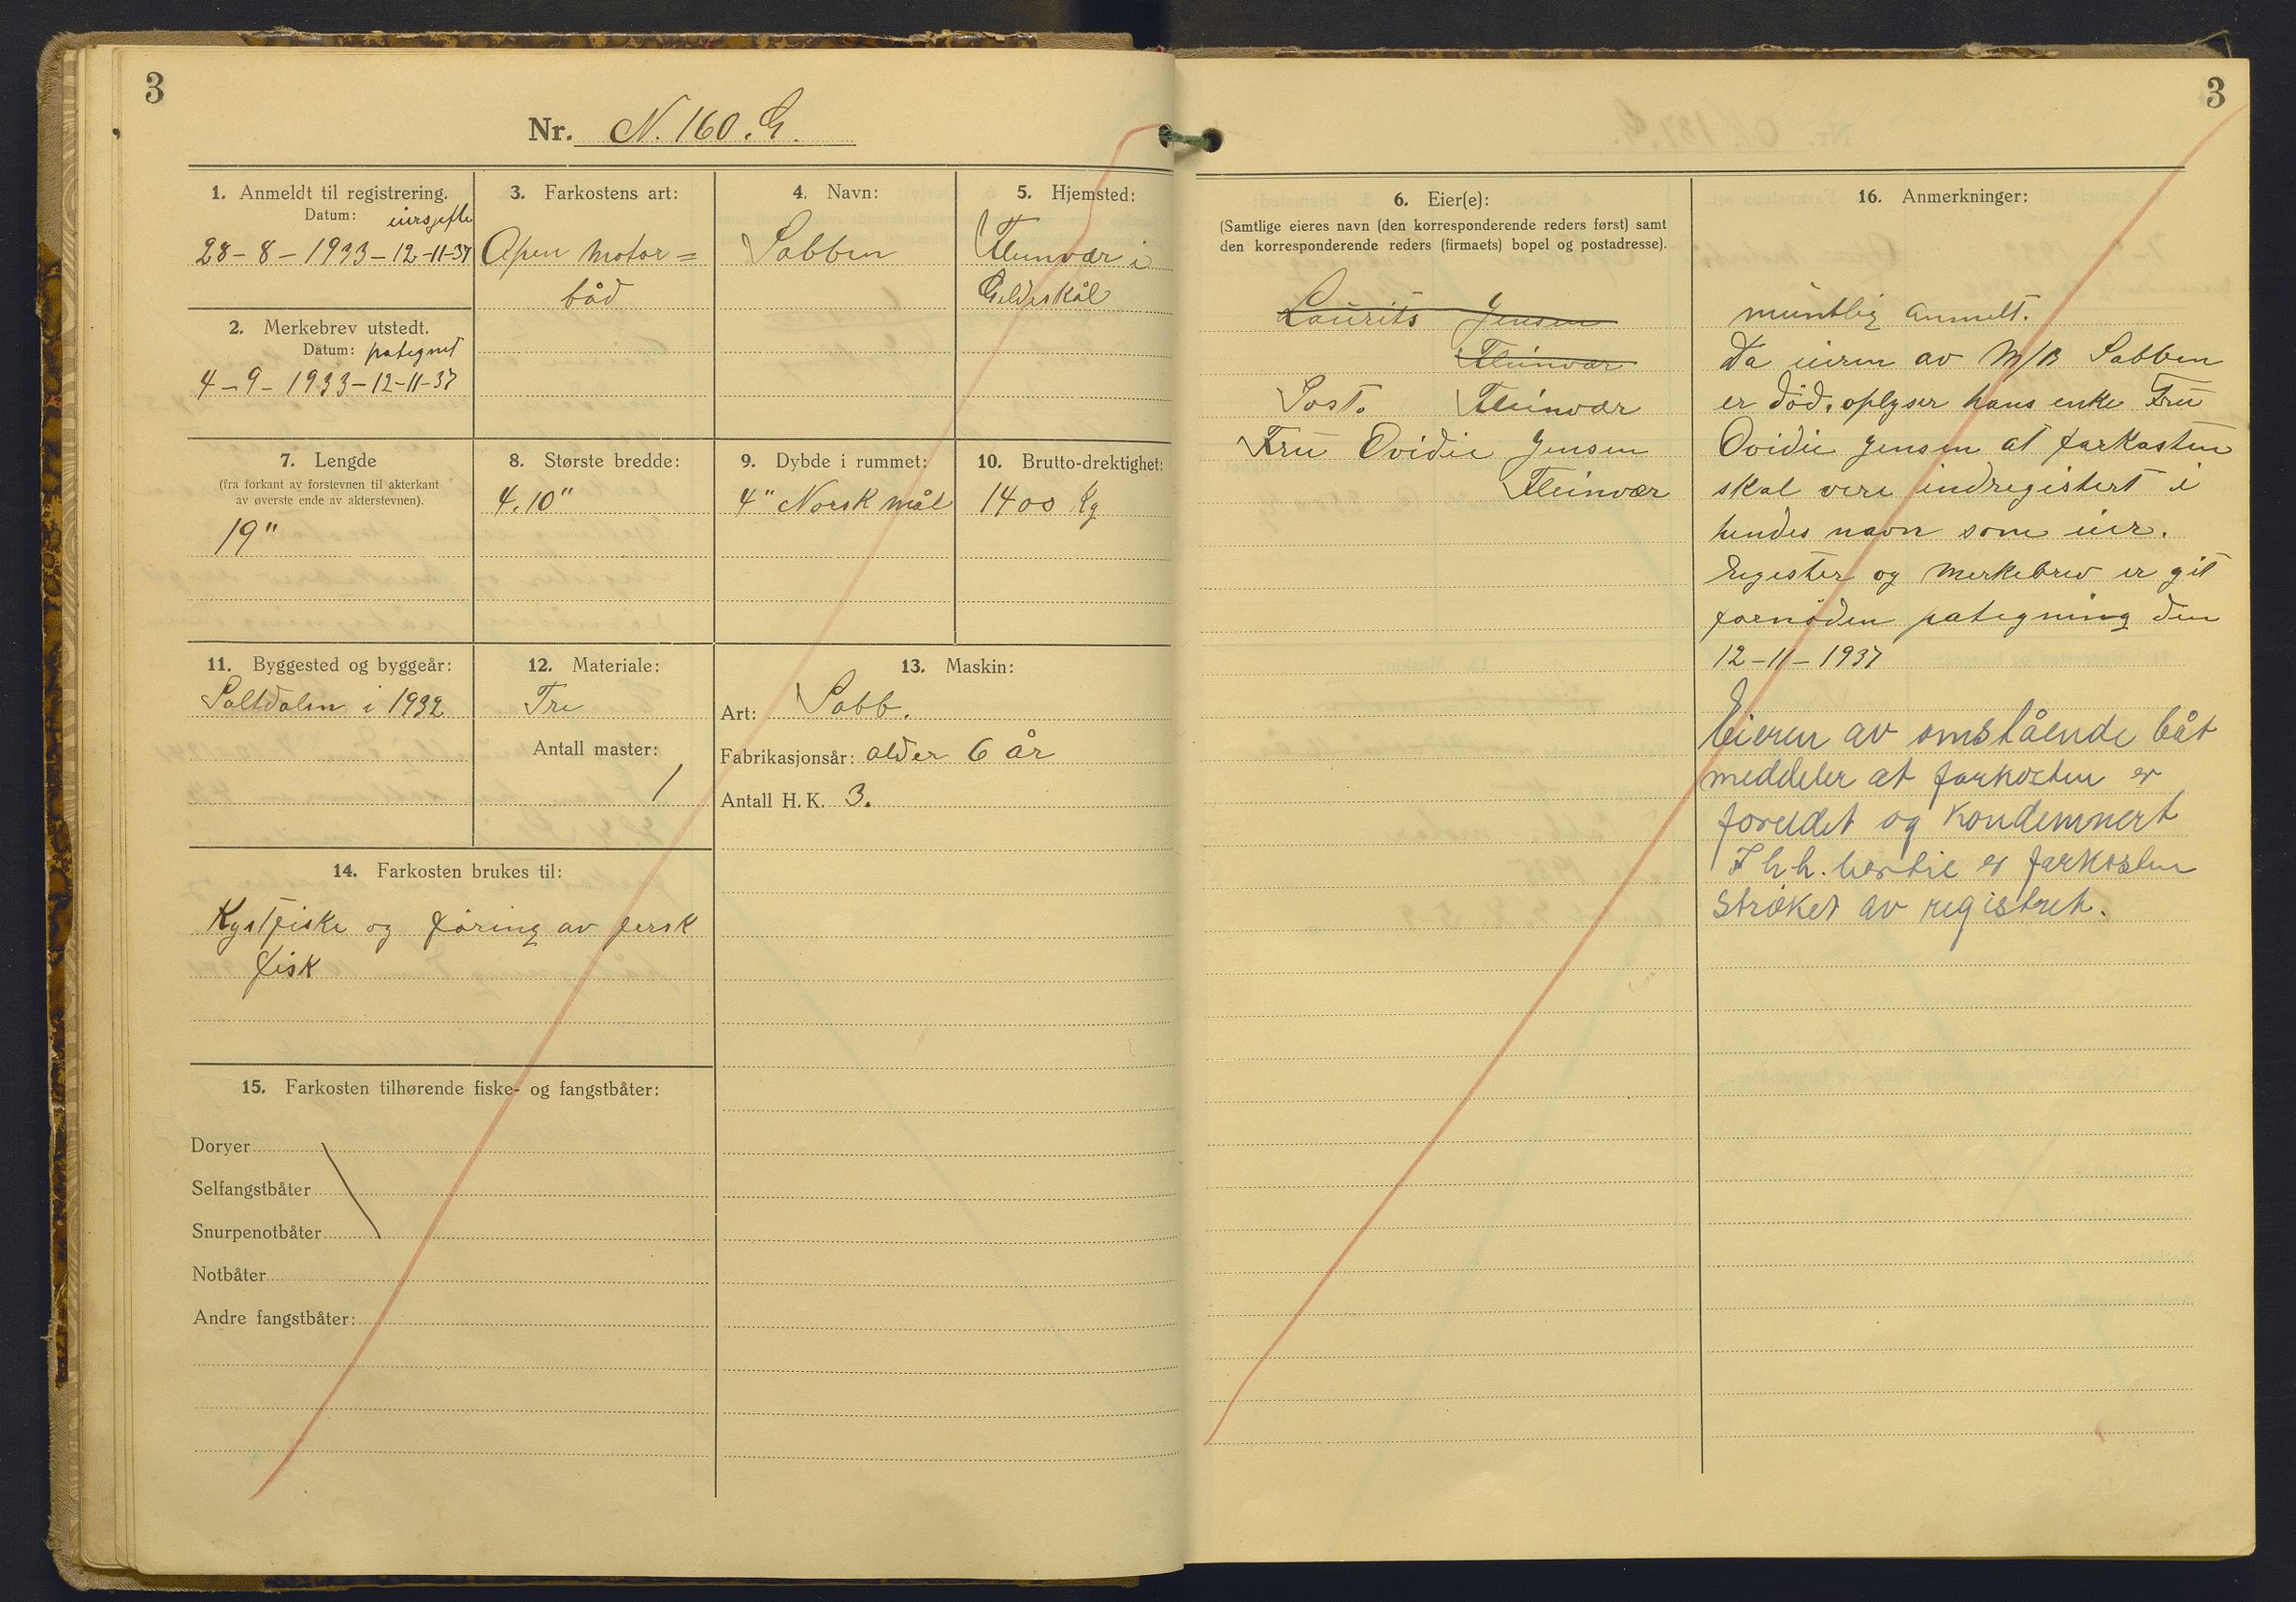 3
Nr. N. 160. G.
1. Anmeldt til registrering.
Datum:
28-8-1933-12-11-37
2. Merkebrev utstedt.
Datum: pategnet
4-9-1933-12-11-37
3. Farkostens art:
Open motor=
båd
4. Navn:
Sabben
5. Hjemsted:
Fleinvær i
Gildeskål
7. Lengde
(fra forkant av forstevnen til akterkant
av øverste ende av akterstevnen).
19"
8. Største bredde:
4.10"
9. Dybde i rummet:
4" Norsk mål
10. Brutto-drektighet:
1400 Kg
11. Byggested og byggeår:
Saltdalen i 1932
12. Materiale:
Tre
Antall master:
1
13. Maskin:
Art: Sabb.
Fabrikasjonsår: alder 6 år
Antall H. K. 3.
14. Farkosten brukes til:
Kystfiske og föring av fersk
fisk
15. Farkosten tilhørende fiske- og fangstbåter:
Doryer
Selfangstbåter
Snurpenotbåter
Notbåter
Andre fangstbåter:
3
6. Eier(e):
(Samtlige eieres navn (den korresponderende reders først) samt
den korresponderende reders (firmaets) bopel og postadresse).
Laurits Jensen
Fleinvær
Post. Fleinvær
Fru Ovidie Jensen
Fleinvær
16. Anmerkninger:
muntlig anmelt.
Da eieren av M/B Sabben
er död, oplyser hans enke Fru
Ovidie Jensen at farkosten
skal vere indregistert i
hendes navn som eier.
Register og merkebrev er git
fornöden pategning den
12-11-1937
Eieren av omstående båt
meddeler at farkosten er
foreldet og kondemnert
I h.h. hertil er farkosten
strøket av registret.